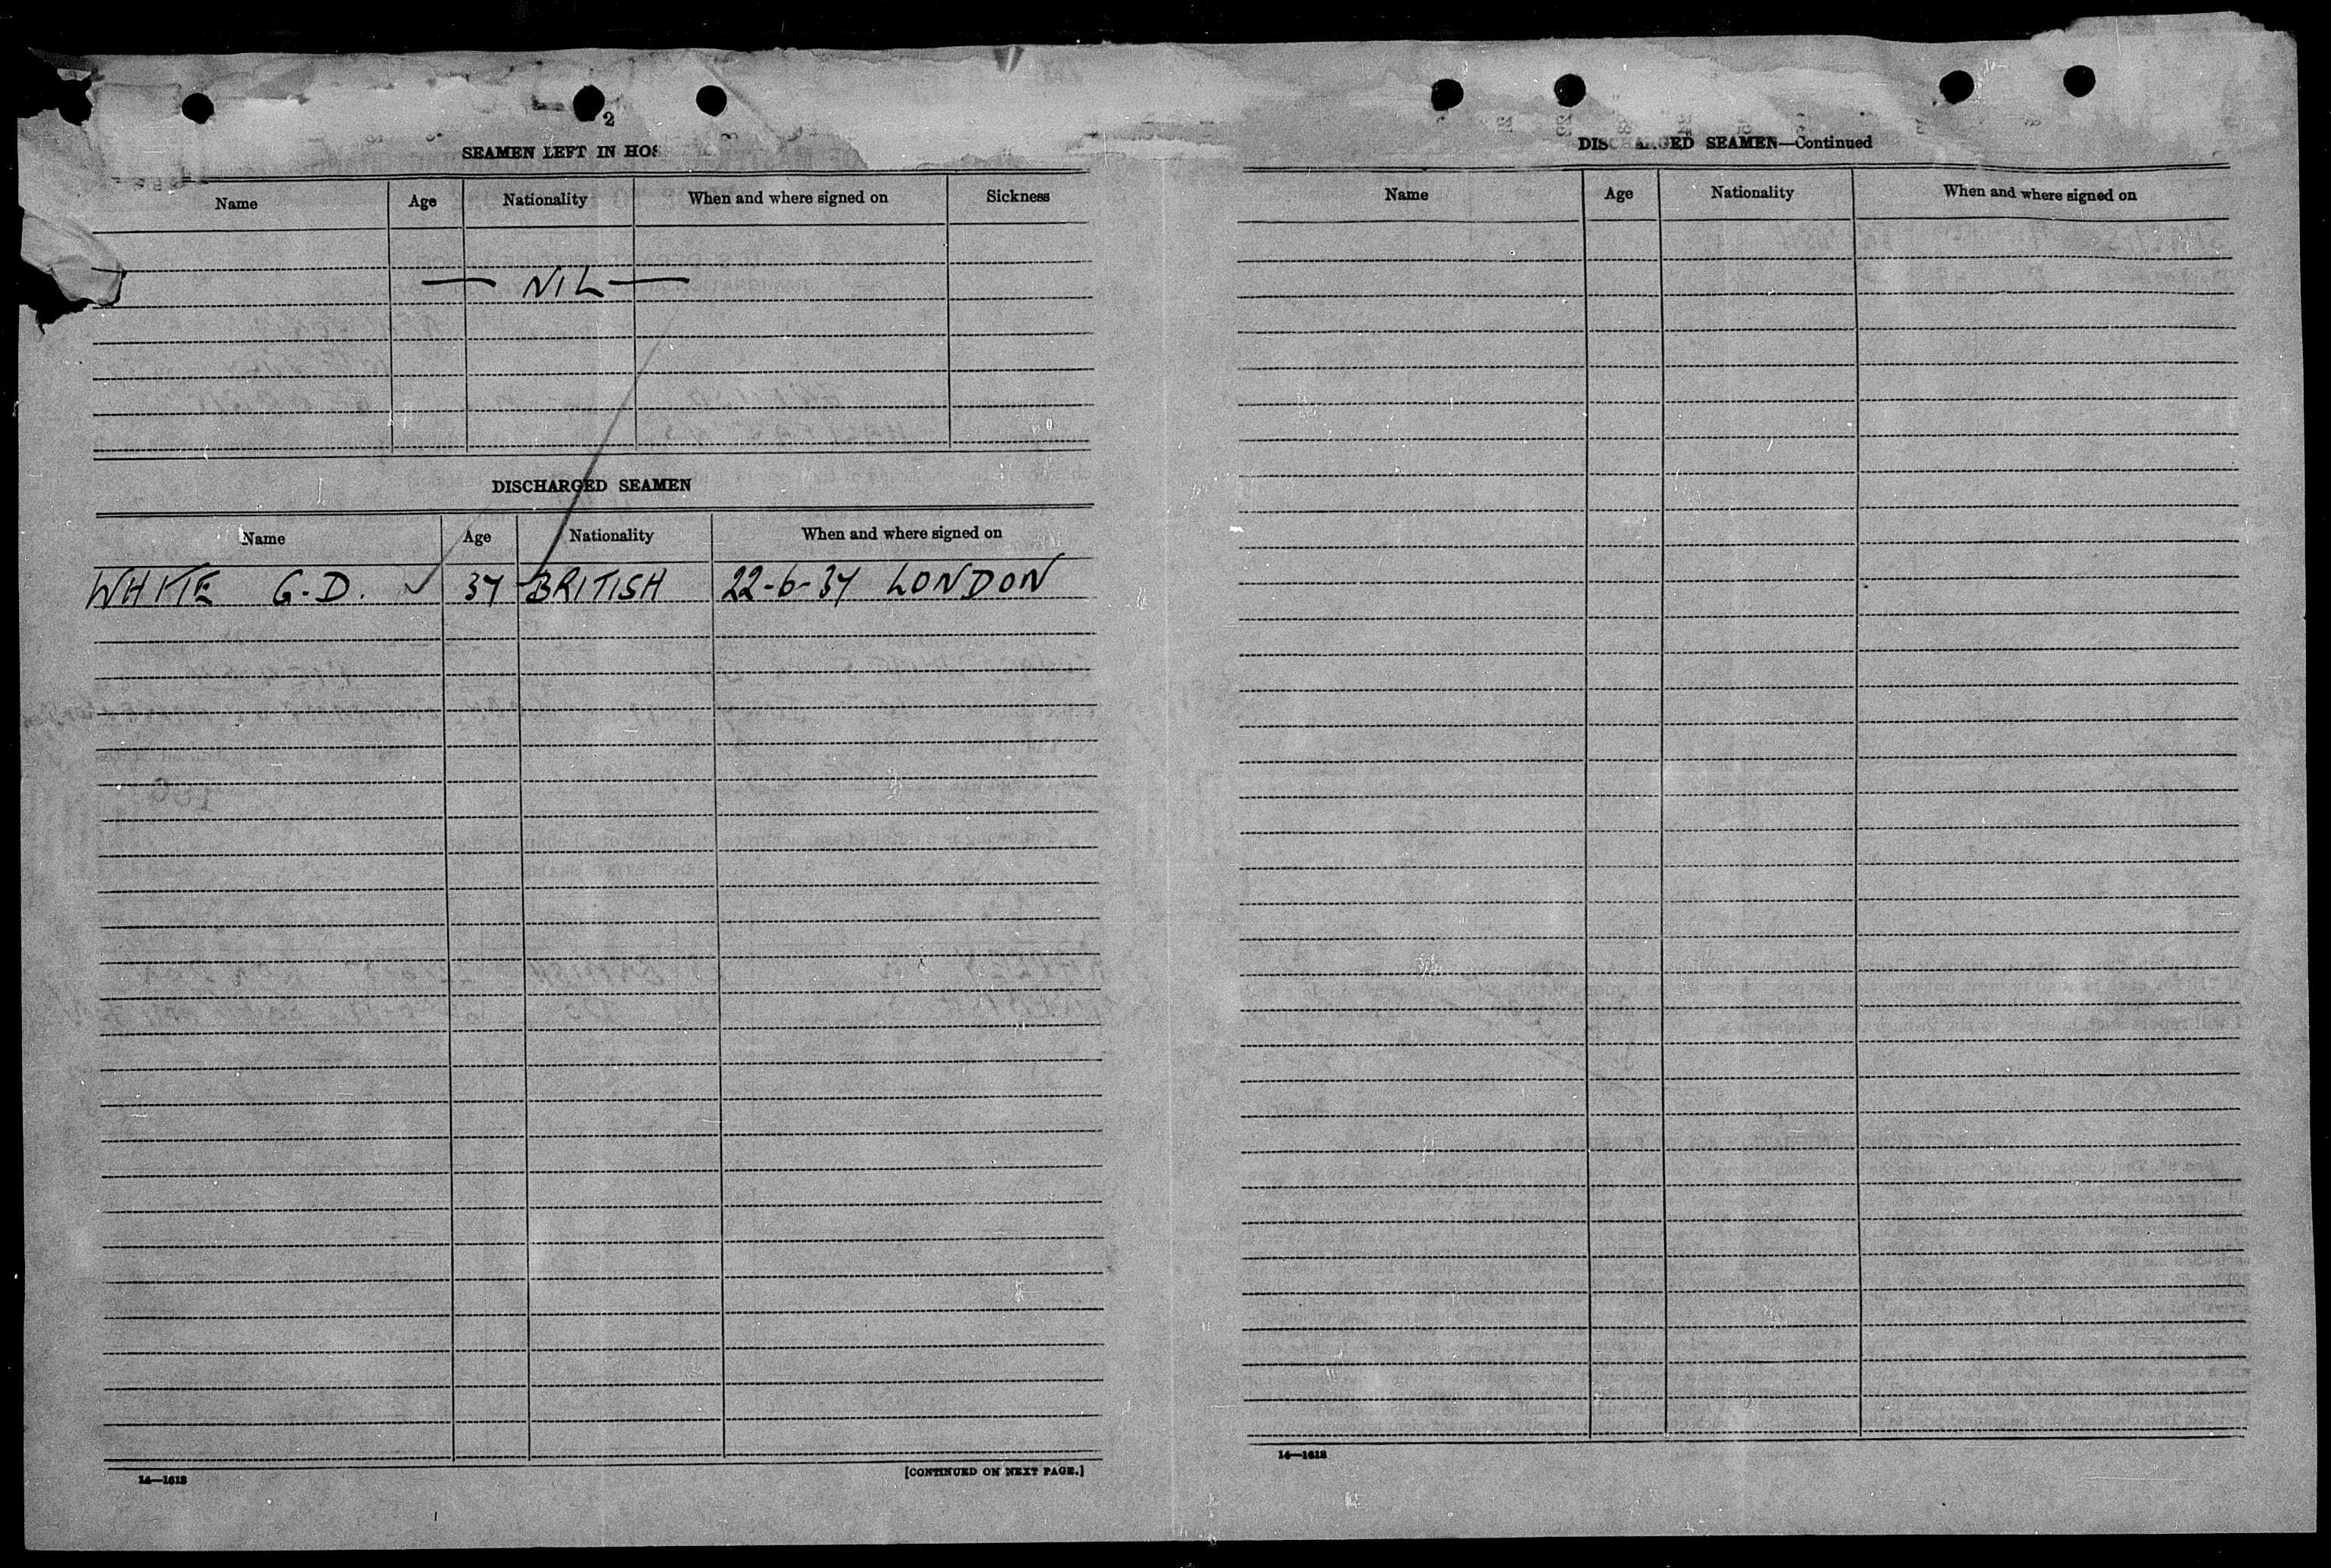 2
SEAMEN LEFT IN HOS
Name Age Nationality When and where signed on Sickness
— NIL —
DISCHARGED SEAMEN
Name Age Nationality When and where signed on
WHITE G.D. 37 BRITISH 22-6-37 LONDON
14—1618
[CONTINUED ON NEXT PAGE.]
DISCHARGED SEAMEN—Continued
Name Age Nationality When and where signed on
14—1618